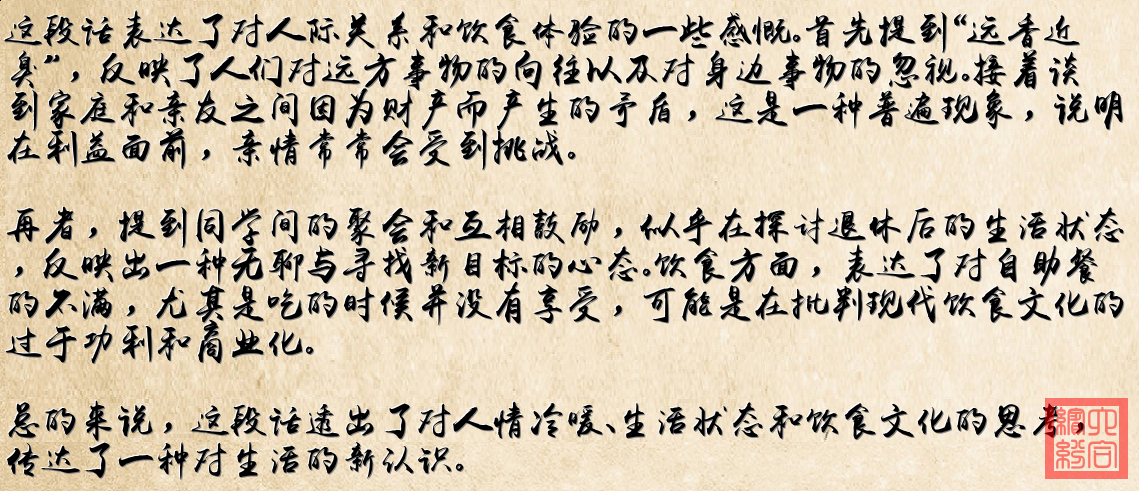 这段话表达了对人际关系和饮食体验的一些感慨。首先提到“远香近
臭”，反映了人们对远方事物的向往以及对身边事物的忽视。接着谈
到家庭和亲友之间因为财产而产生的矛盾，这是一种普遍现象，说明
在利益面前，亲情常常会受到挑战。
再者，提到同学间的聚会和互相鼓励，似乎在探讨退休后的生活状态
，反映出一种无聊与寻找新目标的心态。饮食方面，表达了对自助餐
的不满，尤其是吃的时候并没有享受，可能是在批判现代饮食文化的
过于功利和商业化。
总的来说，这段话透出了对人情冷暖、生活状态和饮食文化的思考，
传达了一种对生活的新认识。